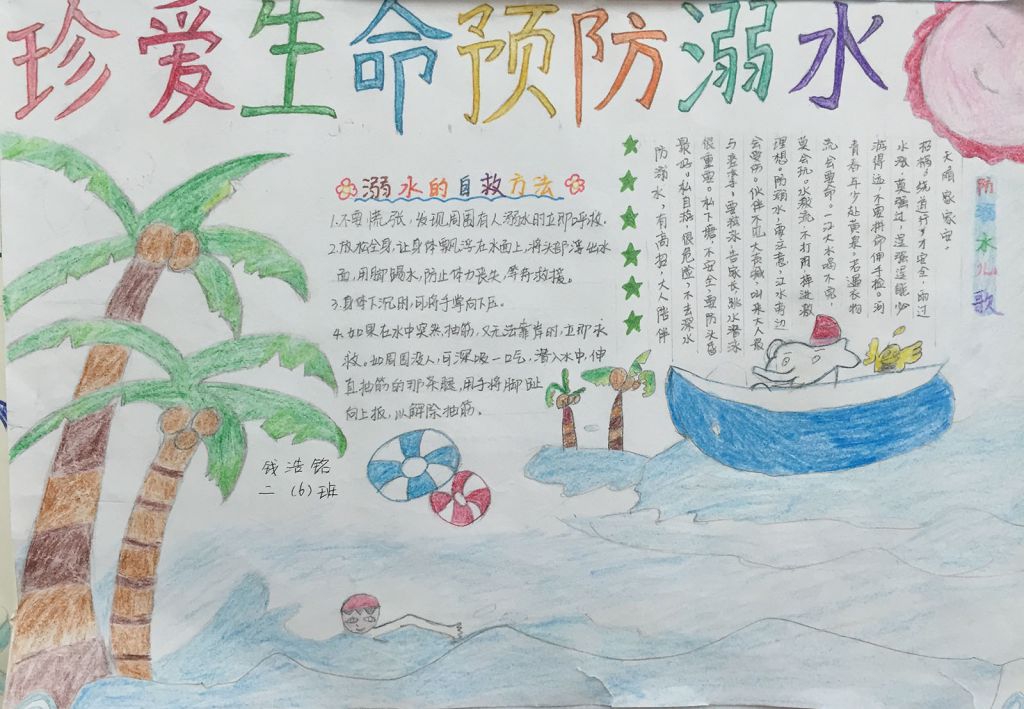 珍爱生命预防溺水
溺水的自救方法
1.不要慌张，发现周围有人溺水时立即呼救。
2.放松全身，让身体飘浮在水面上，将头部浮出水
面，用脚踢水，防止体力丧失，等待救援。
3.身体下沉时，可将手掌向下压。
4.如果在水中突然抽筋，又无法靠岸时，立即求
救。如周围没人，可深吸一口气，潜入水中，伸
直抽筋的那条腿，用手将脚趾
向上扳，以解除抽筋。
钱浩铭
二（6）班
防溺水儿歌
防溺水，有高招，大人陪伴
最好。私自游，很危险，不去深水
很重要。私下塘，不安全，要防头昏
告家长，跳水潜泳
会要防。伙伴不见大声喊，叫来大人最
理想。防溺水，要立意，江水海边
莫会玩，水激流，不打闹，掉进激
流会要命。一江大水喝不完，
青春年少赴黄泉，若遇衣物
游得远，不要拼命伸手捡。河
水涨，莫强过，逞强逞能少
招祸。绕道行，才安全，雨过
天晴家家安。